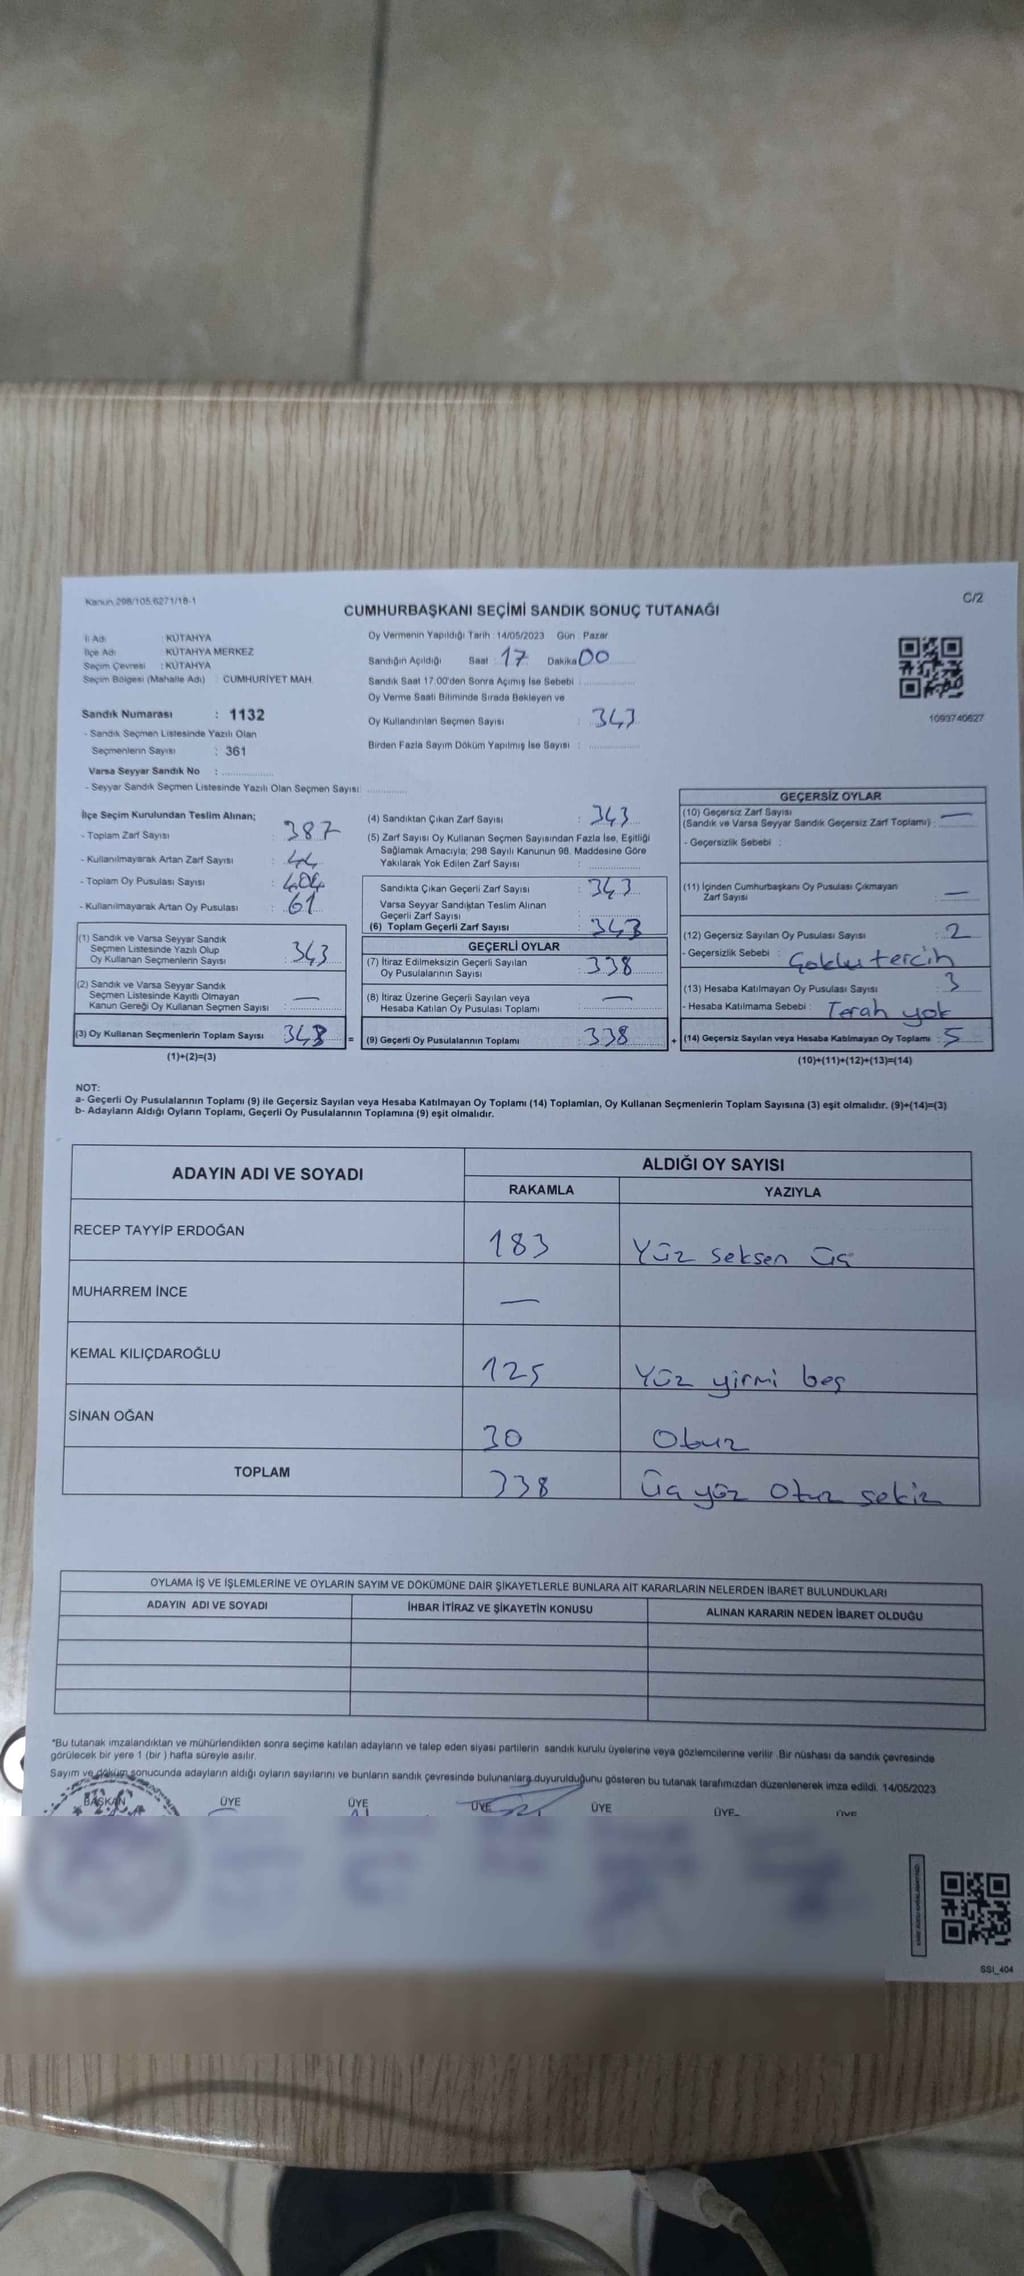 Kanun 298/105.6271/18-1
C/2
CUMHURBAŞKANI SEÇİMİ SANDIK SONUÇ TUTANAĞI
İl Adı : KÜTAHYA
İlçe Adı : KÜTAHYA MERKEZ
Seçim Çevresi : KÜTAHYA
Seçim Bölgesi (Mahalle Adı) : CUMHURİYET MAH.
Sandık Numarası : 1132
- Sandık Seçmen Listesinde Yazılı Olan
Seçmenlerin Sayısı : 361
Varsa Seyyar Sandık No :
- Seyyar Sandık Seçmen Listesinde Yazılı Olan Seçmen Sayısı:
Oy Vermenin Yapıldığı Tarih : 14/05/2023 Gün Pazar
Sandığın Açıldığı Saat : 17 Dakika 00
Sandık Saat 17:00'den Sonra Açılmış İse Sebebi :
Oy Verme Saati Bitiminde Sırada Bekleyen ve
Oy Kullandırılan Seçmen Sayısı : 343
Birden Fazla Sayım Döküm Yapılmış İse Sayısı :
1093740627
İlçe Seçim Kurulundan Teslim Alınan;
- Toplam Zarf Sayısı : 387
- Kullanılmayarak Artan Zarf Sayısı : 44
- Toplam Oy Pusulası Sayısı : 404
- Kullanılmayarak Artan Oy Pusulası : 61
(1) Sandık ve Varsa Seyyar Sandık
Seçmen Listesinde Yazılı Olup
Oy Kullanan Seçmenlerin Sayısı : 343
(2) Sandık ve Varsa Seyyar Sandık
Seçmen Listesinde Kayıtlı Olmayan
Kanun Gereği Oy Kullanan Seçmen Sayısı : —
(3) Oy Kullanan Seçmenlerin Toplam Sayısı 343 =
(1)+(2)=(3)
(4) Sandıktan Çıkan Zarf Sayısı : 343
(5) Zarf Sayısı Oy Kullanan Seçmen Sayısından Fazla İse, Eşitliği
Sağlamak Amacıyla; 298 Sayılı Kanunun 98. Maddesine Göre
Yakılarak Yok Edilen Zarf Sayısı :
Sandıkta Çıkan Geçerli Zarf Sayısı : 343
Varsa Seyyar Sandıktan Teslim Alınan
Geçerli Zarf Sayısı :
(6) Toplam Geçerli Zarf Sayısı : 343
GEÇERLİ OYLAR
(7) İtiraz Edilmeksizin Geçerli Sayılan
Oy Pusulalarının Sayısı : 338
(8) İtiraz Üzerine Geçerli Sayılan veya
Hesaba Katılan Oy Pusulası Toplamı : —
(9) Geçerli Oy Pusulalarının Toplamı : 338 +
GEÇERSİZ OYLAR
(10) Geçersiz Zarf Sayısı
(Sandık ve Varsa Seyyar Sandık Geçersiz Zarf Toplamı) : —
- Geçersizlik Sebebi :
(11) İçinden Cumhurbaşkanı Oy Pusulası Çıkmayan
Zarf Sayısı : —
(12) Geçersiz Sayılan Oy Pusulası Sayısı : 2
- Geçersizlik Sebebi : Çoklu tercih
(13) Hesaba Katılmayan Oy Pusulası Sayısı : 3
- Hesaba Katılmama Sebebi : Terah yok
(14) Geçersiz Sayılan veya Hesaba Katılmayan Oy Toplamı : 5
(10)+(11)+(12)+(13)=(14)
NOT:
a- Geçerli Oy Pusulalarının Toplamı (9) ile Geçersiz Sayılan veya Hesaba Katılmayan Oy Toplamı (14) Toplamları, Oy Kullanan Seçmenlerin Toplam Sayısına (3) eşit olmalıdır. (9)+(14)=(3)
b- Adayların Aldığı Oyların Toplamı, Geçerli Oy Pusulalarının Toplamına (9) eşit olmalıdır.
ADAYIN ADI VE SOYADI
ALDIĞI OY SAYISI
RAKAMLA YAZIYLA
RECEP TAYYİP ERDOĞAN 183 Yüz seksen üç
MUHARREM İNCE —
KEMAL KILIÇDAROĞLU 125 Yüz yirmi beş
SİNAN OĞAN 30 Otuz
TOPLAM 338 Üç yüz Otuz sekiz
OYLAMA İŞ VE İŞLEMLERİNE VE OYLARIN SAYIM VE DÖKÜMÜNE DAİR ŞİKAYETLERLE BUNLARA AİT KARARLARIN NELERDEN İBARET BULUNDUKLARI
ADAYIN ADI VE SOYADI İHBAR İTİRAZ VE ŞİKAYETİN KONUSU ALINAN KARARIN NEDEN İBARET OLDUĞU
*Bu tutanak imzalandıktan ve mühürlendikten sonra seçime katılan adayların ve talep eden siyasi partilerin sandık kurulu üyelerine veya gözlemcilerine verilir. Bir nüshası da sandık çevresinde
görülecek bir yere 1 (bir ) hafta süreyle asılır.
Sayım ve döküm sonucunda adayların aldığı oyların sayılarını ve bunların sandık çevresinde bulunanlara duyurulduğunu gösteren bu tutanak tarafımızdan düzenlenerek imza edildi. 14/05/2023
BAŞKAN ÜYE ÜYE ÜYE ÜYE ÜYE ÜYE
SSI_404